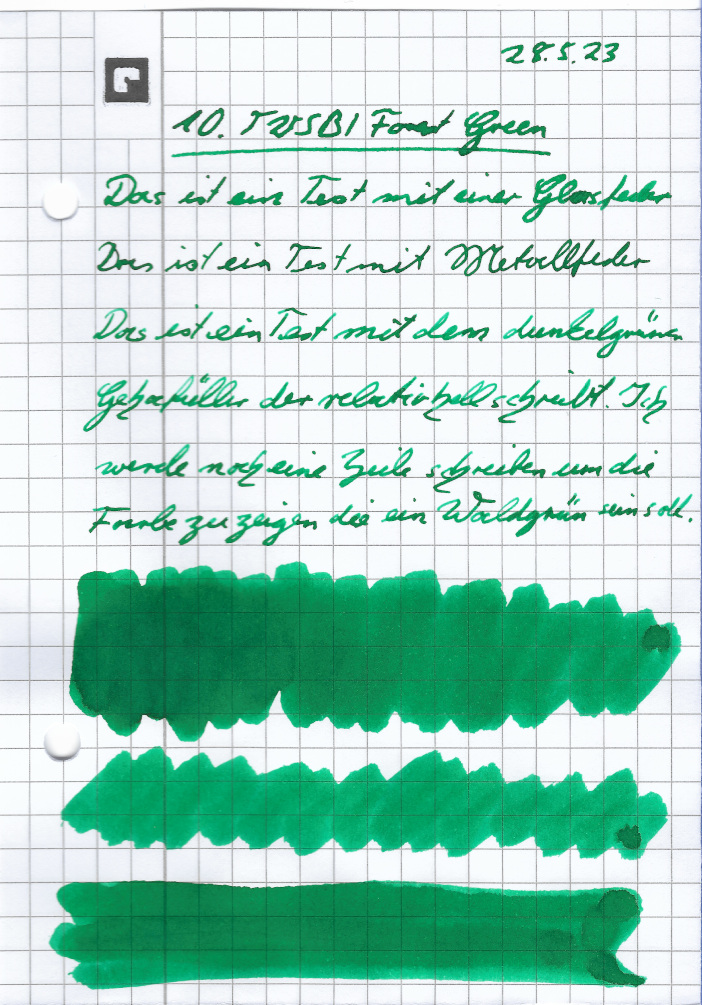 28.5.23
10. TWSBI Forest Green
Das ist ein Test mit einer Glasfeder
Das ist ein Test mit Metallfeder
Das ist ein Test mit dem dunkelgrünen
der relativ hell schreibt. Ich
werde noch eine Zeile schreiben um die
Farbe zu zeigen die ein Waldgrün sein soll.